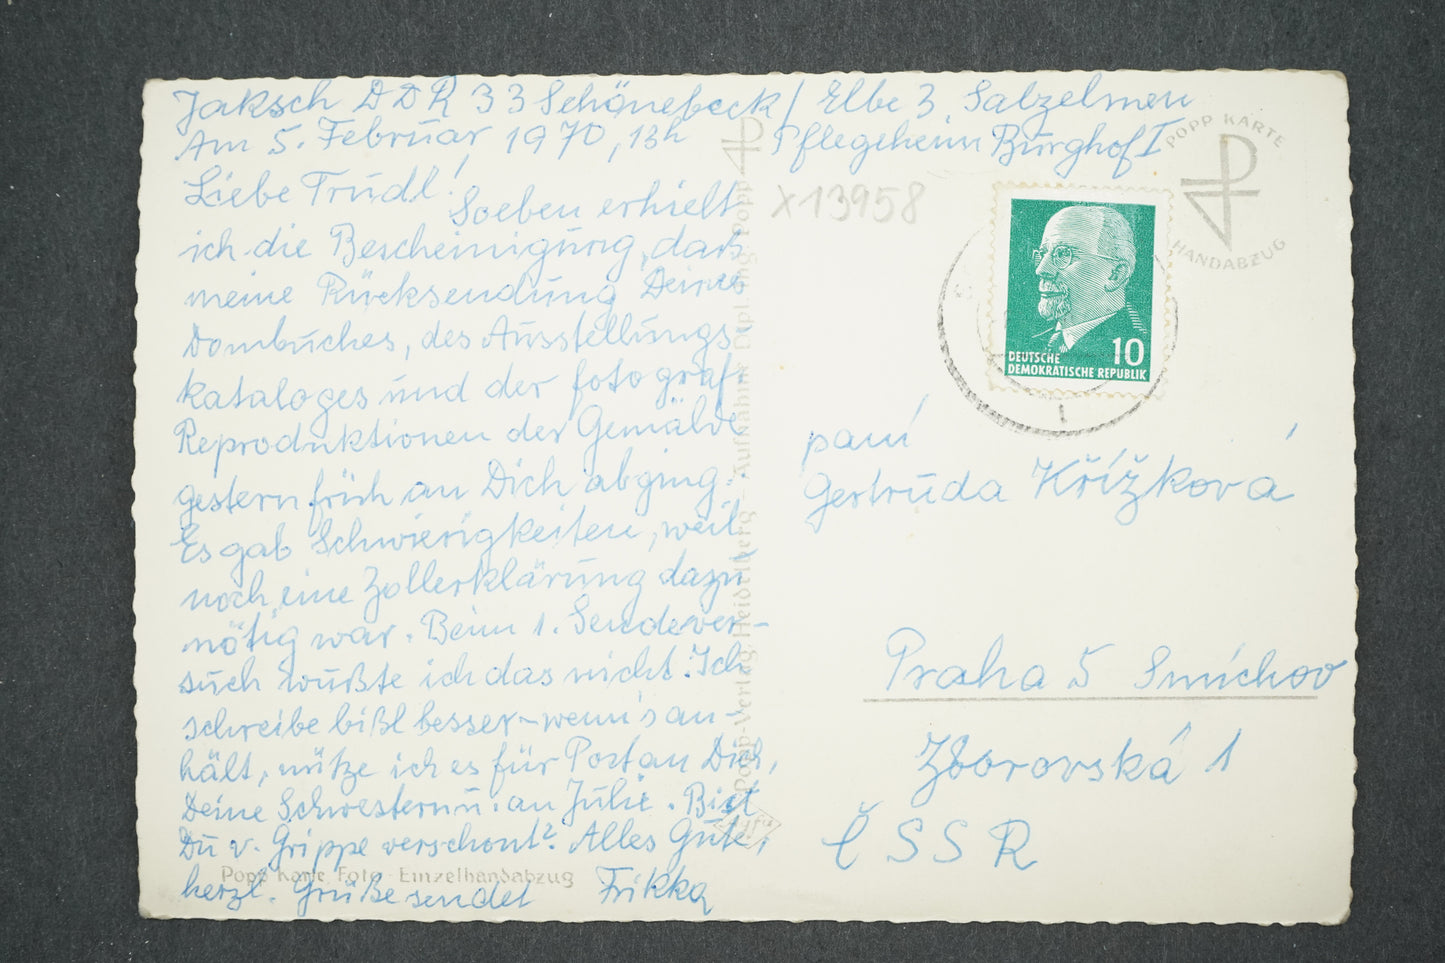 Jaksch DDR 33 Schönebeck / Elbe 3 Salzelmen
Am 5. Februar 1970, 13h Pflegeheim Burghof I
Liebe Trudl!
Soeben erhielt
ich die Bescheinigung, daß
meine Rücksendung Deines
Dombuches, des Ausstellungs-
kataloges und der fotograf.
Reproduktionen der Gemälde
gestern früh an Dich abging.
Es gab Schwierigkeiten, weil
noch eine Zollerklärung dazu
nötig war. Beim 1. Sendever-
such wußte ich das nicht. Ich
schreibe bißl besser – wenn's an-
hält, nütze ich es für Post an Dich,
Deine Schwestern u. an Julie. Bist
Du v. Grippe verschont? Alles Gute,
herzl. Grüße sendet Frikka
X13958
POPP KARTE
HANDABZUG
DEUTSCHE
DEMOKRATISCHE REPUBLIK
10
paní
Gertruda Křížková
Praha 5 Smíchov
Zborovská 1
ČSSR
Popp-Verlag, Heidelberg – Aufnahme Dipl. Ing. Popp
Popp Karte Foto-Einzelhandabzug
Agfa